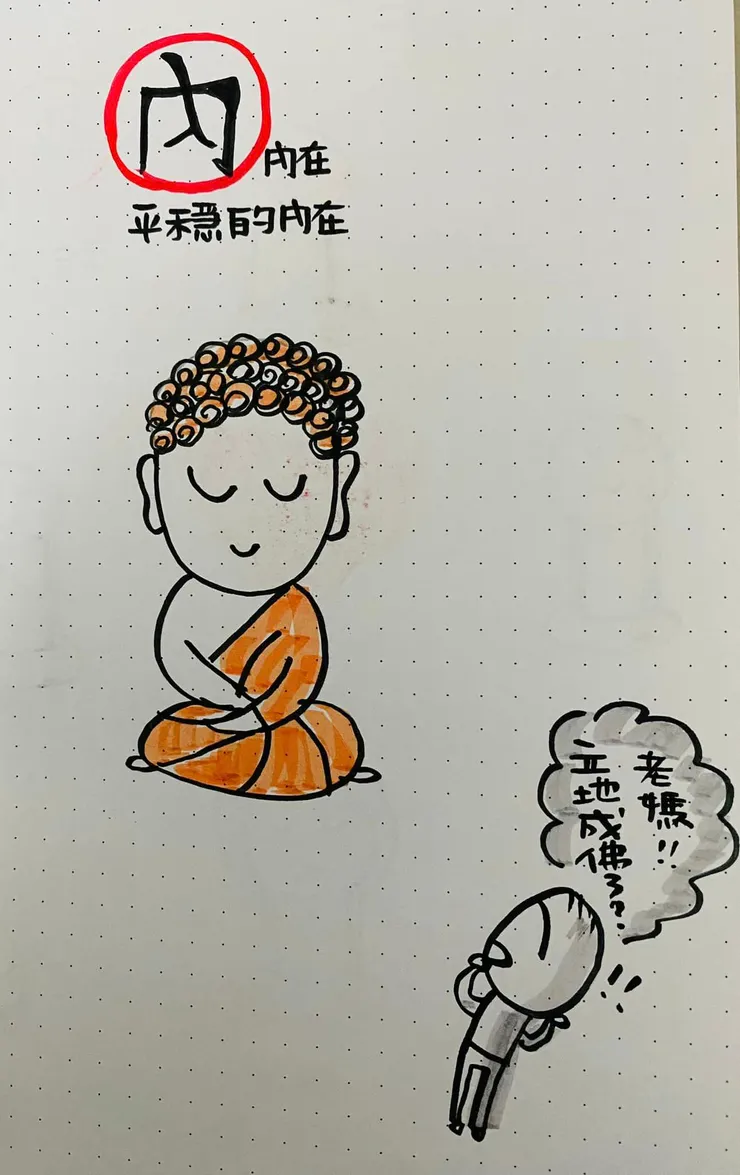 內
內在
平穩的內在
老媽!!
立地成佛了?
!!